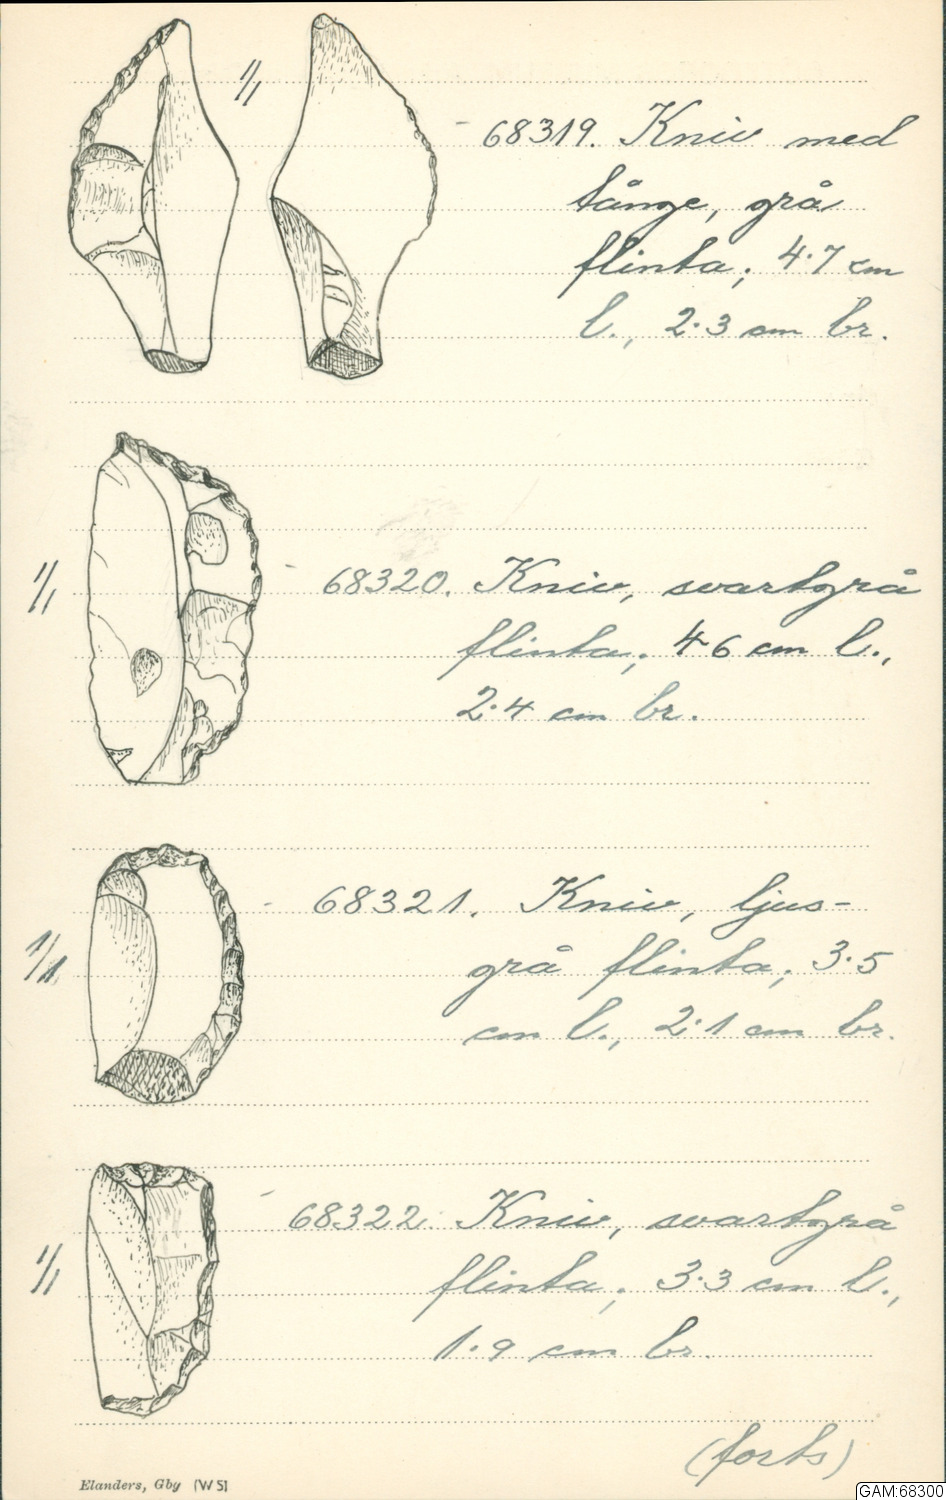 1/1
68319. Kniv med
tånge, grå
flinta; 4·7 cm
l., 2·3 cm br.
1/1
68320. Kniv, svartgrå
flinta; 4·6 cm l.,
2·4 cm br.
1/1
68321. Kniv, ljus-
grå flinta; 3·5
cm l., 2·1 cm br.
1/1
68322. Kniv, svartgrå
flinta; 3·3 cm l.,
1·9 cm br.
(forts)
Elanders, Gby (W S)
GAM:68300